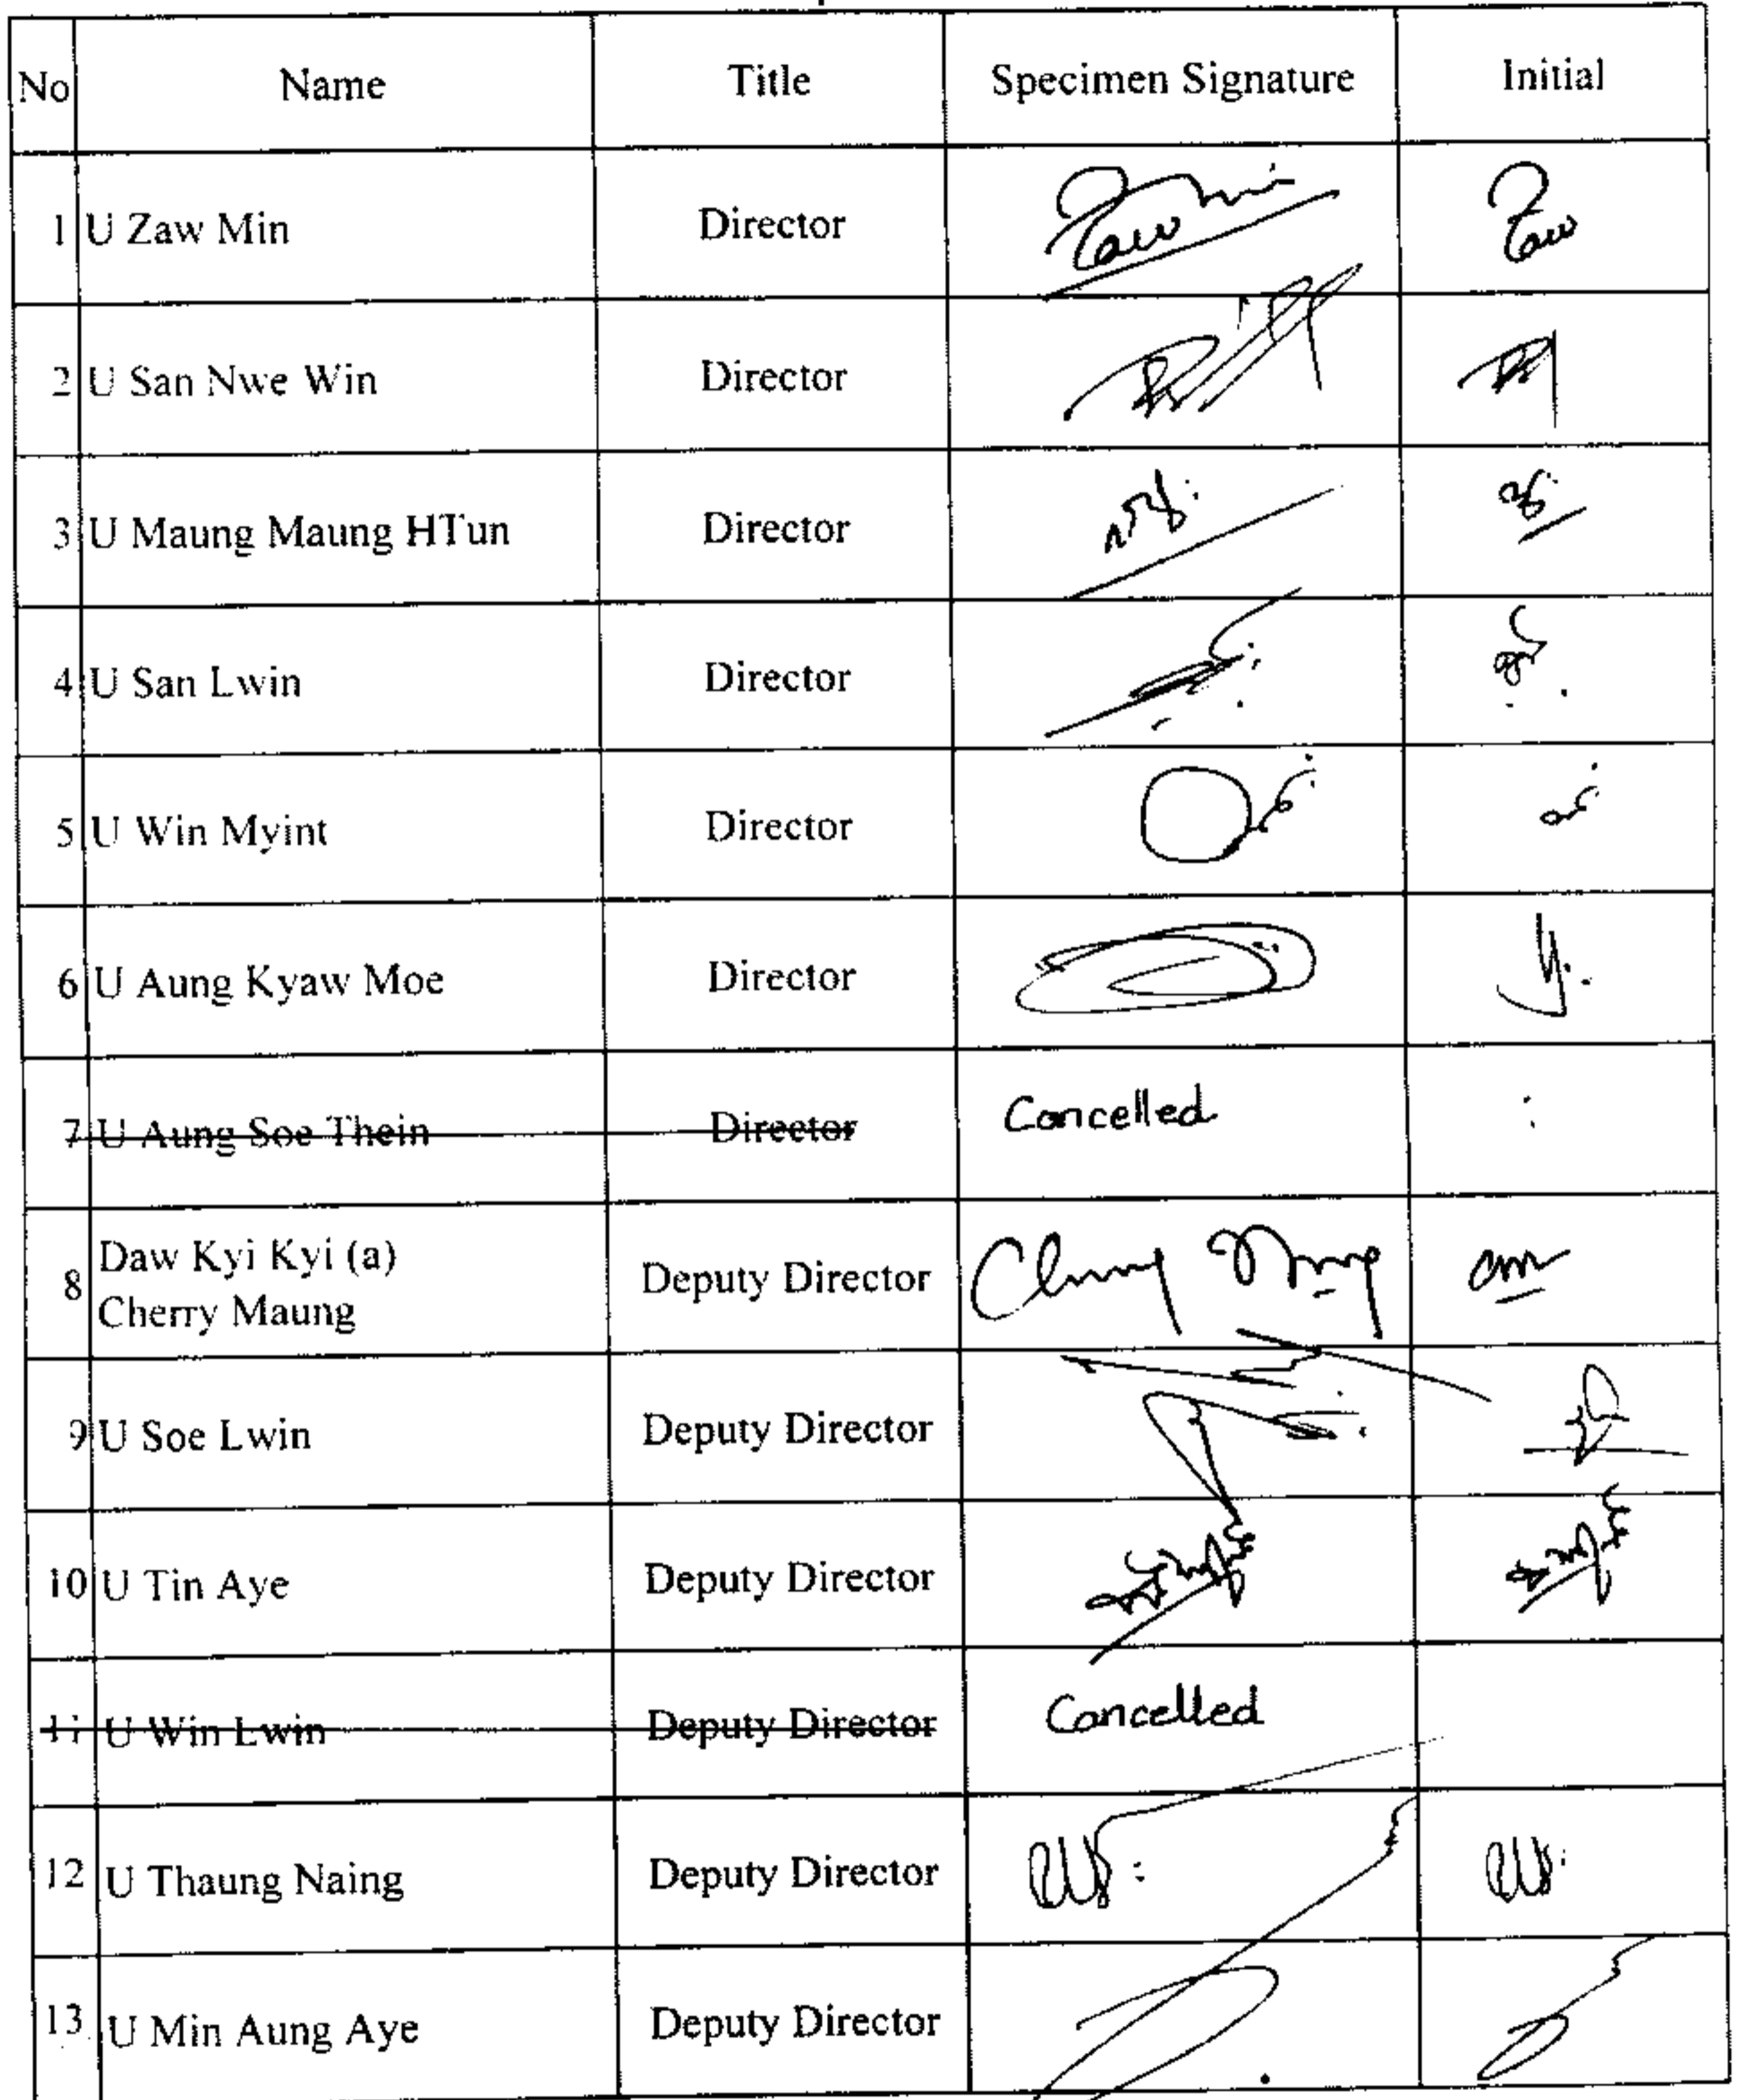 No Name Title Specimen Signature Initial
1 U Zaw Min Director Zaw Min Zaw
2 U San Nwe Win Director
3 U Maung Maung HTun Director
4 U San Lwin Director
5 U Win Myint Director
6 U Aung Kyaw Moe Director
7 U Aung Soe Thein Director Cancelled
8 Daw Kyi Kyi (a)
Cherry Maung Deputy Director
9 U Soe Lwin Deputy Director
10 U Tin Aye Deputy Director
11 U Win Lwin Deputy Director Cancelled
12 U Thaung Naing Deputy Director
13 U Min Aung Aye Deputy Director